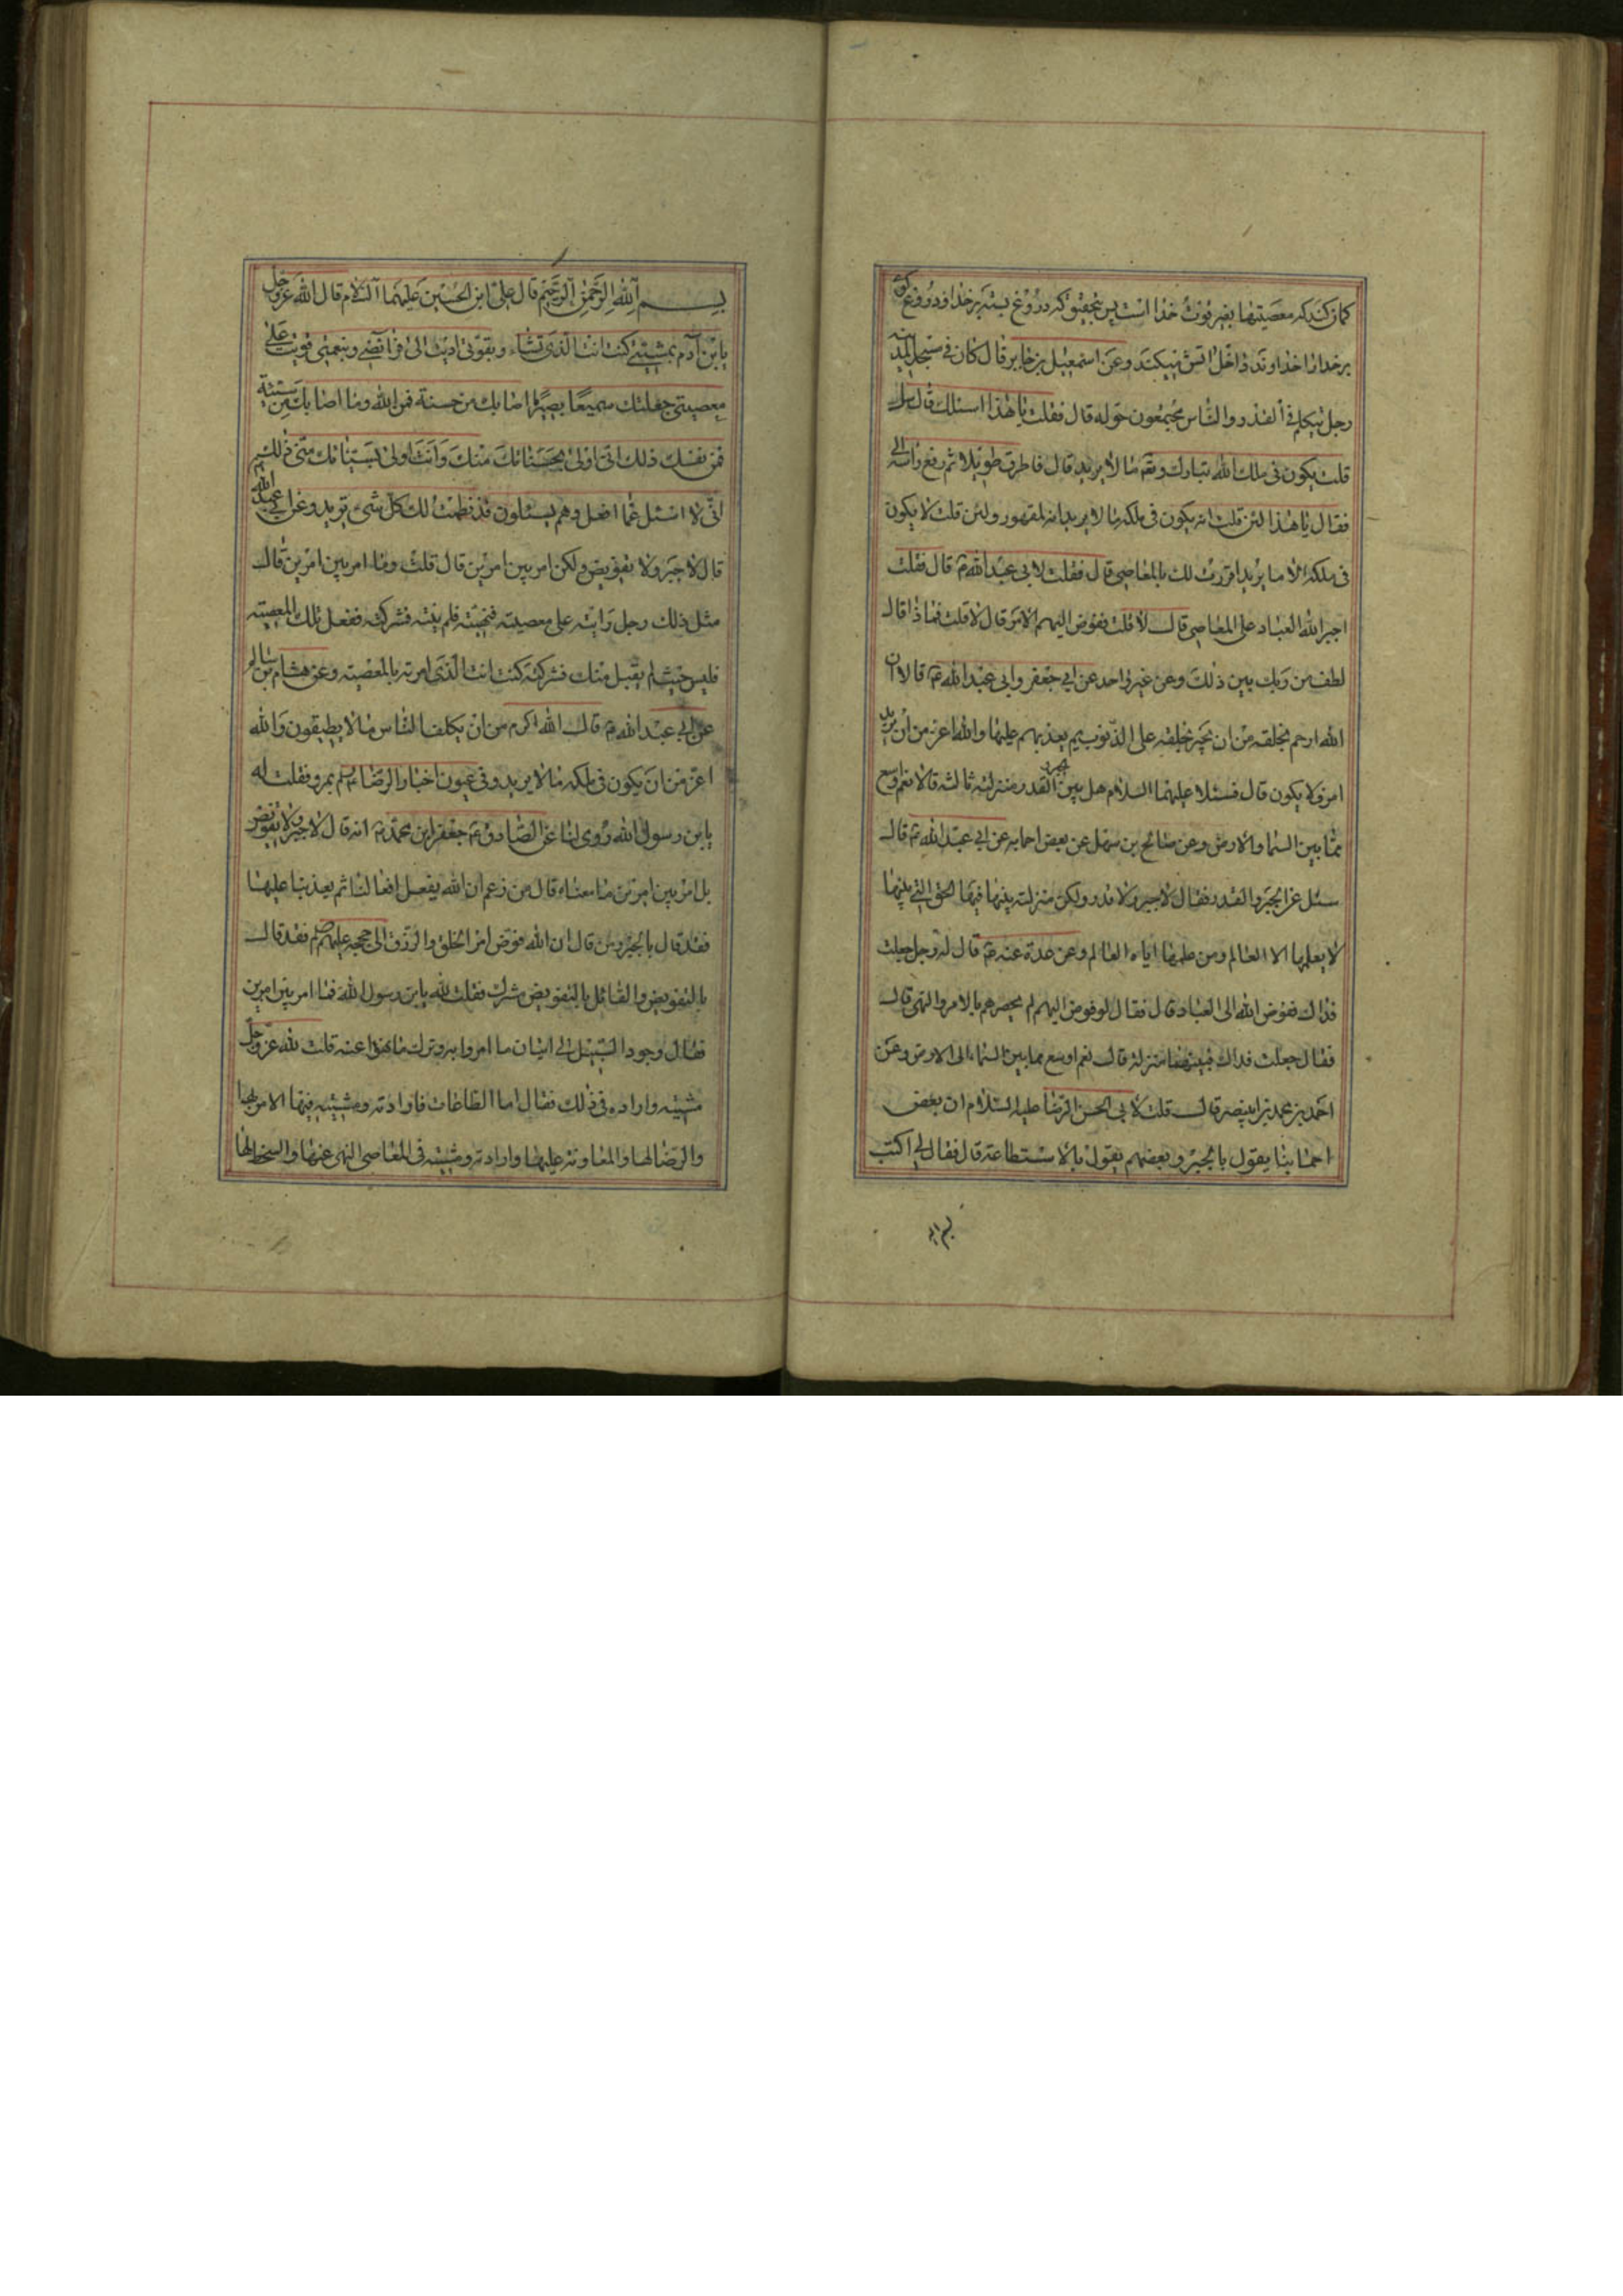 کمان کند که معصیتها بغیر قوت خدا است پس بتحقیق که دروغ بسته بر خدا و دروغ کوی
بر خدا را خداوند داخل اتش میکند و عن اسمعیل بن جابر قال کان فی مسجد المدینه
رجل یتکلم فی القدر و الناس مجتمعون حوله قال فقلت یا هذا اسئلک قال سل
قلت یکون فی ملک الله تبارک و تعم ما لا یرید قال فاطرق طویلا ثم رفع راسه الی
فقال یا هذا لئن قلت انه یکون فی ملکه ما لا یرید انه لمقهور و لئن قلت لا یکون
فی ملکه الا ما یرید اقررت لک بالمعاصی قال فقلت لابی عبد الله ع قال قلت
اجبر الله العباد علی المعاصی قال لا قلت ففوض الیهم الامر قال لا قلت فماذا قال
لطف من ربک بین ذلک و عن غیر واحد عن ابی جعفر و ابی عبد الله ع قالا ان
الله ارحم بخلقه من ان یجبر خلقه علی الذنوب ثم یعذبهم علیها و الله اعز من ان یرید
امرا و لا یکون قال فسئلا علیهما السلام هل بین الجبر و القدر منزلته ثالثه قالا نعم اوسع
مما بین السما و الارض و عن صالح بن سهل عن بعض اصحابه عن ابی عبد الله ع قال
سئل عن الجبر و القدر فقال لا جبر و لا قدر و لکن منزلته بینهما فیها الحق التی بینهما
لا یعلمها الا العالم و من علمها ایاه العالم و عن عدة عنه ع قال له رجل جعلت
فداک ففوض الله الی العباد قال فقال لو فوض الیهم لم یحصرهم بالامر و النهی قال
فقال جعلت فداک فبینهما منزلة قال نعم اوسع مما بین السماء الی الارض و عن
احمد بن محمد بن ابی نصر قال قلت لابی الحسن الرضا علیه السلام ان بعض
اصحابنا یقول بالجبر و بعضهم یقول بالاستطاعة قال فقال لی اکتب
بسم الله
بسم الله الرحمن الرحیم قال علی ابن الحسین علیهما السلام قال الله عز و جل
یابن آدم بمشیتی کنت انت الذی تشاء و بقوتی ادیت الی فرائضی و بنعمتی قویت علی
معصیتی جعلتک سمیعا بصیرا ما اصابک من حسنة فمن الله و ما اصابک من سیئة
فمن نفسک ذلک انی اولی بحسناتک منک و انت اولی بسیئاتک منی ذلک
انی لا اسئل عما افعل و هم یسئلون قد نظمت لک کل شیء ترید و عن ابی عبد الله
قال لا جبر و لا تفویض و لکن امر بین امرین قال قلت و ما امر بین امرین قال
مثل ذلک رجل رایته علی معصیته فنهیته فلم ینته فترکته ففعل تلک المعصیته
فلیس حیث لم یقبل منک فترکته کنت انت الذی امرته بالمعصیته و عن هشام بن سالم
عن ابی عبد الله ع قال الله اکرم من ان یکلف الناس ما لا یطیقون و الله
اعز من ان یکون فی ملکه ما لا یرید و فی عیون اخبار الرضا بمرو فقلت له
یابن رسول الله روی لنا عن الصادق ع جعفر ابن محمد ع انه قال لا جبر و لا تفویض
بل امر بین امرین ما معناه قال من زعم ان الله یفعل افعالنا ثم یعذبنا علیها
فقد قال بالجبر و من قال ان الله فوض امر الخلق و الرزق الی حججه علیهم فقد قال
بالتفویض و القائل بالتفویض مشرک فقلت له یابن رسول الله فما امر بین امرین
فقال وجود السبیل الی اتیان ما امروا به و ترک ما نهوا عنه قلت لله عز و جل
مشیته و اراده فی ذلک فقال اما الطاعات فارادته و مشیته فیها الامر بها
و الرضا لها و المعاونه علیها و ارادته و مشیته فی المعاصی النهی عنها و السخط لها